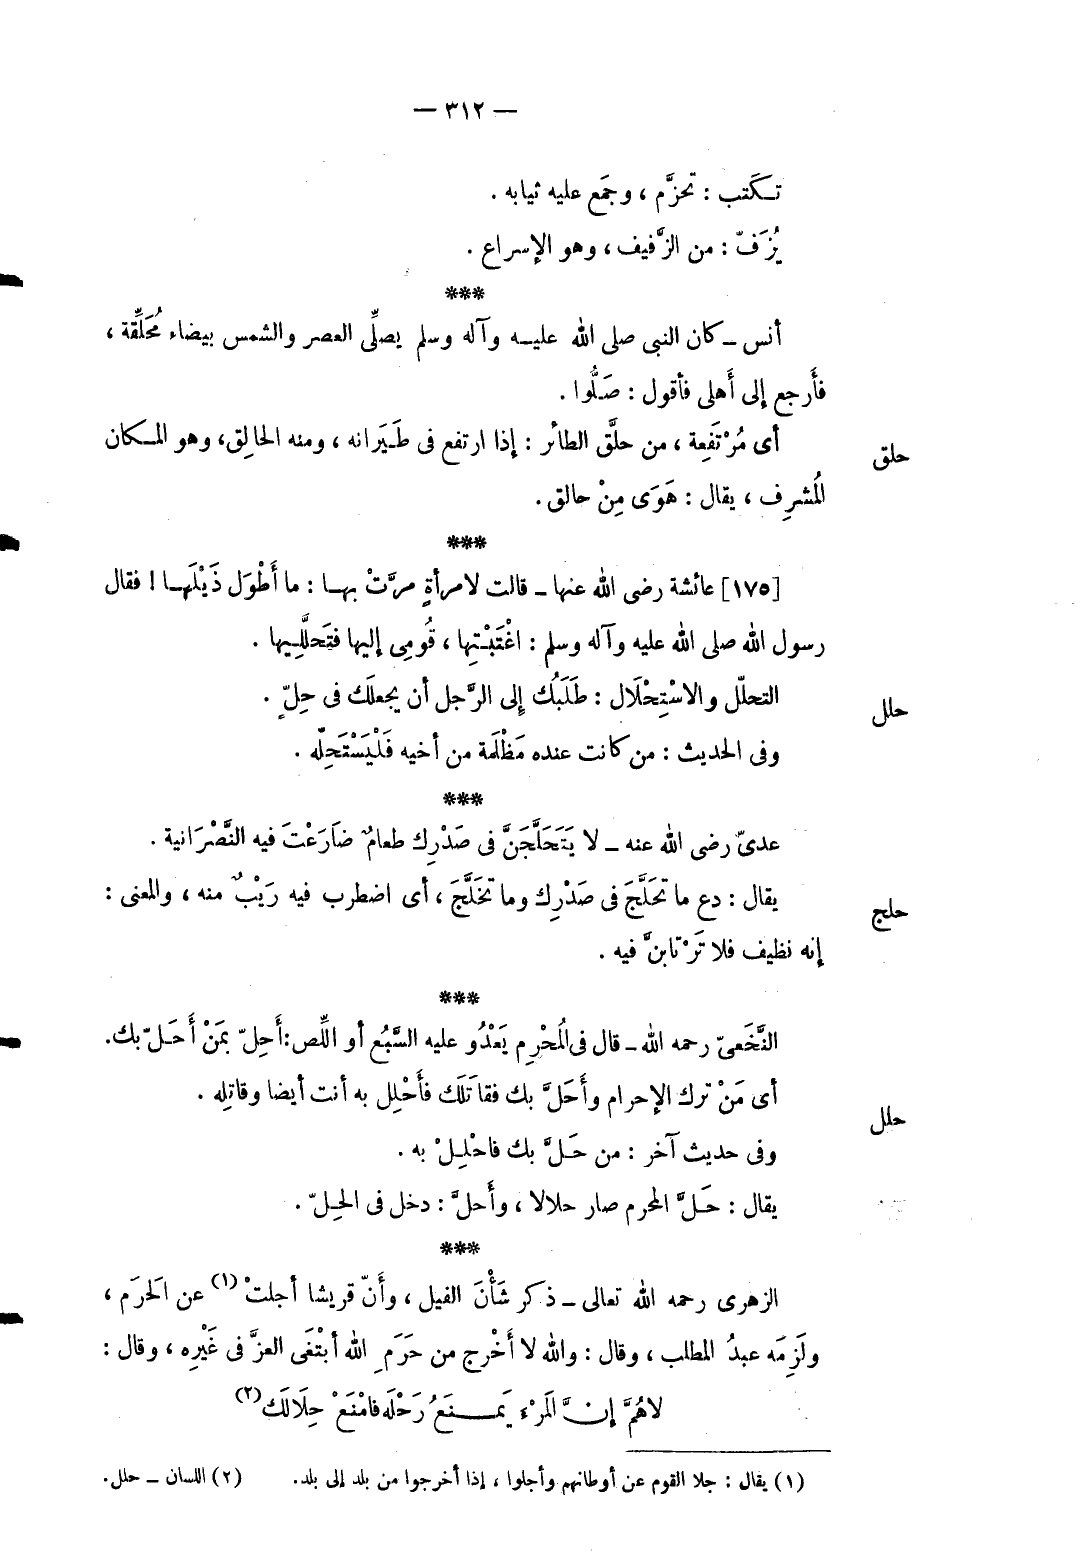 — ٣١٢ —
تكَتب : تحزَّم ، وجمَع عليه ثيابه .
يُزَفّ : من الزَّفيف ، وهو الإسراع .
***
أنس ــ كان النبى صلى الله عليه وآله وسلم يصلِّى العصر والشمس بيضاء مُحَلِّقة ،
فأَرجع إلى أَهلى فأقول : صَلُّوا .
حلق
أى مُرْتَفِعة ، من حلَّق الطائر : إذا ارتفع فى طَيَرانه ، ومنه الحالِق، وهو المكان
المُشرِف ، يقال : هَوَى مِنْ حالق .
***
[١٧٥] عائشة رضى الله عنها ــ قالت لامرأةٍ مرَّتْ بها : ما أَطْوَل ذَيْلَها ! فقال
رسول الله صلى الله عليه وآله وسلم : اغْتَبْتِها ، قُومِى إليها فتَحلَّلِيها .
حلل
التحلّل والاسْتِحْلَال : طَلَبُك إلى الرَّجل أن يجعلَك فى حِلٍّ .
وفى الحديث : من كانت عنده مَظْلَمة من أخيه فَلْيَسْتَحِلّه .
***
عدىّ رضى الله عنه ــ لا يَتَحَلَّجَنَّ فى صَدْرِك طعامٌ ضَارَعْتَ فيه النَّصْرَانية .
حلج
يقال : دع ما تَحَلَّجَ فى صَدْرِك وما تخَلَّجَ ، أى اضطرب فيه رَيْبٌ منه ، والمعنى :
إنه نظيف فلا تَرْتابنَّ فيه .
***
النَّخَعىّ رحمه الله ــ قال فى المُحْرِم يَعْدُو عليه السَّبُع أو اللِّص: أَحِلّ بمَنْ أَحَلّ بك.
حلل
أى مَنْ ترك الإحرام وأَحَلَّ بك فقاتَلَك فأَحْلِل به أنت أيضا وقاتِله .
وفى حديث آخر : من حَلَّ بك فاحْلِلْ به .
يقال : حَلَّ المحرم صار حلالا ، وأَحلَّ : دخل فى الحِلّ .
***
الزهرى رحمه الله تعالى ــ ذكر شَأْنَ الفيل ، وأَنّ قريشا أجلتْ (١) عن الحَرَم ،
ولَزِمَه عبدُ المطلب ، وقال : والله لا أَخْرج من حَرَمِ الله أبْتَغَى العزَّ فى غَيْرِه ، وقال :
لاهُمَّ إنَّ المَرْءَ يَمنَعُ رَحْلَه فامْنَعْ حِلَالَك (٢)
(١) يقال : جلا القوم عن أوطانهم وأجلوا ، إذا أخرجوا من بلد إلى بلد. (٢) اللسان ــ حلل.